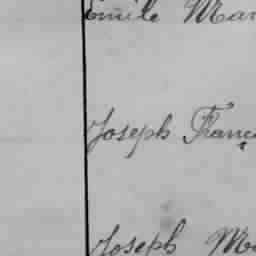 Emile Mar
Joseph Franç
Joseph Ma